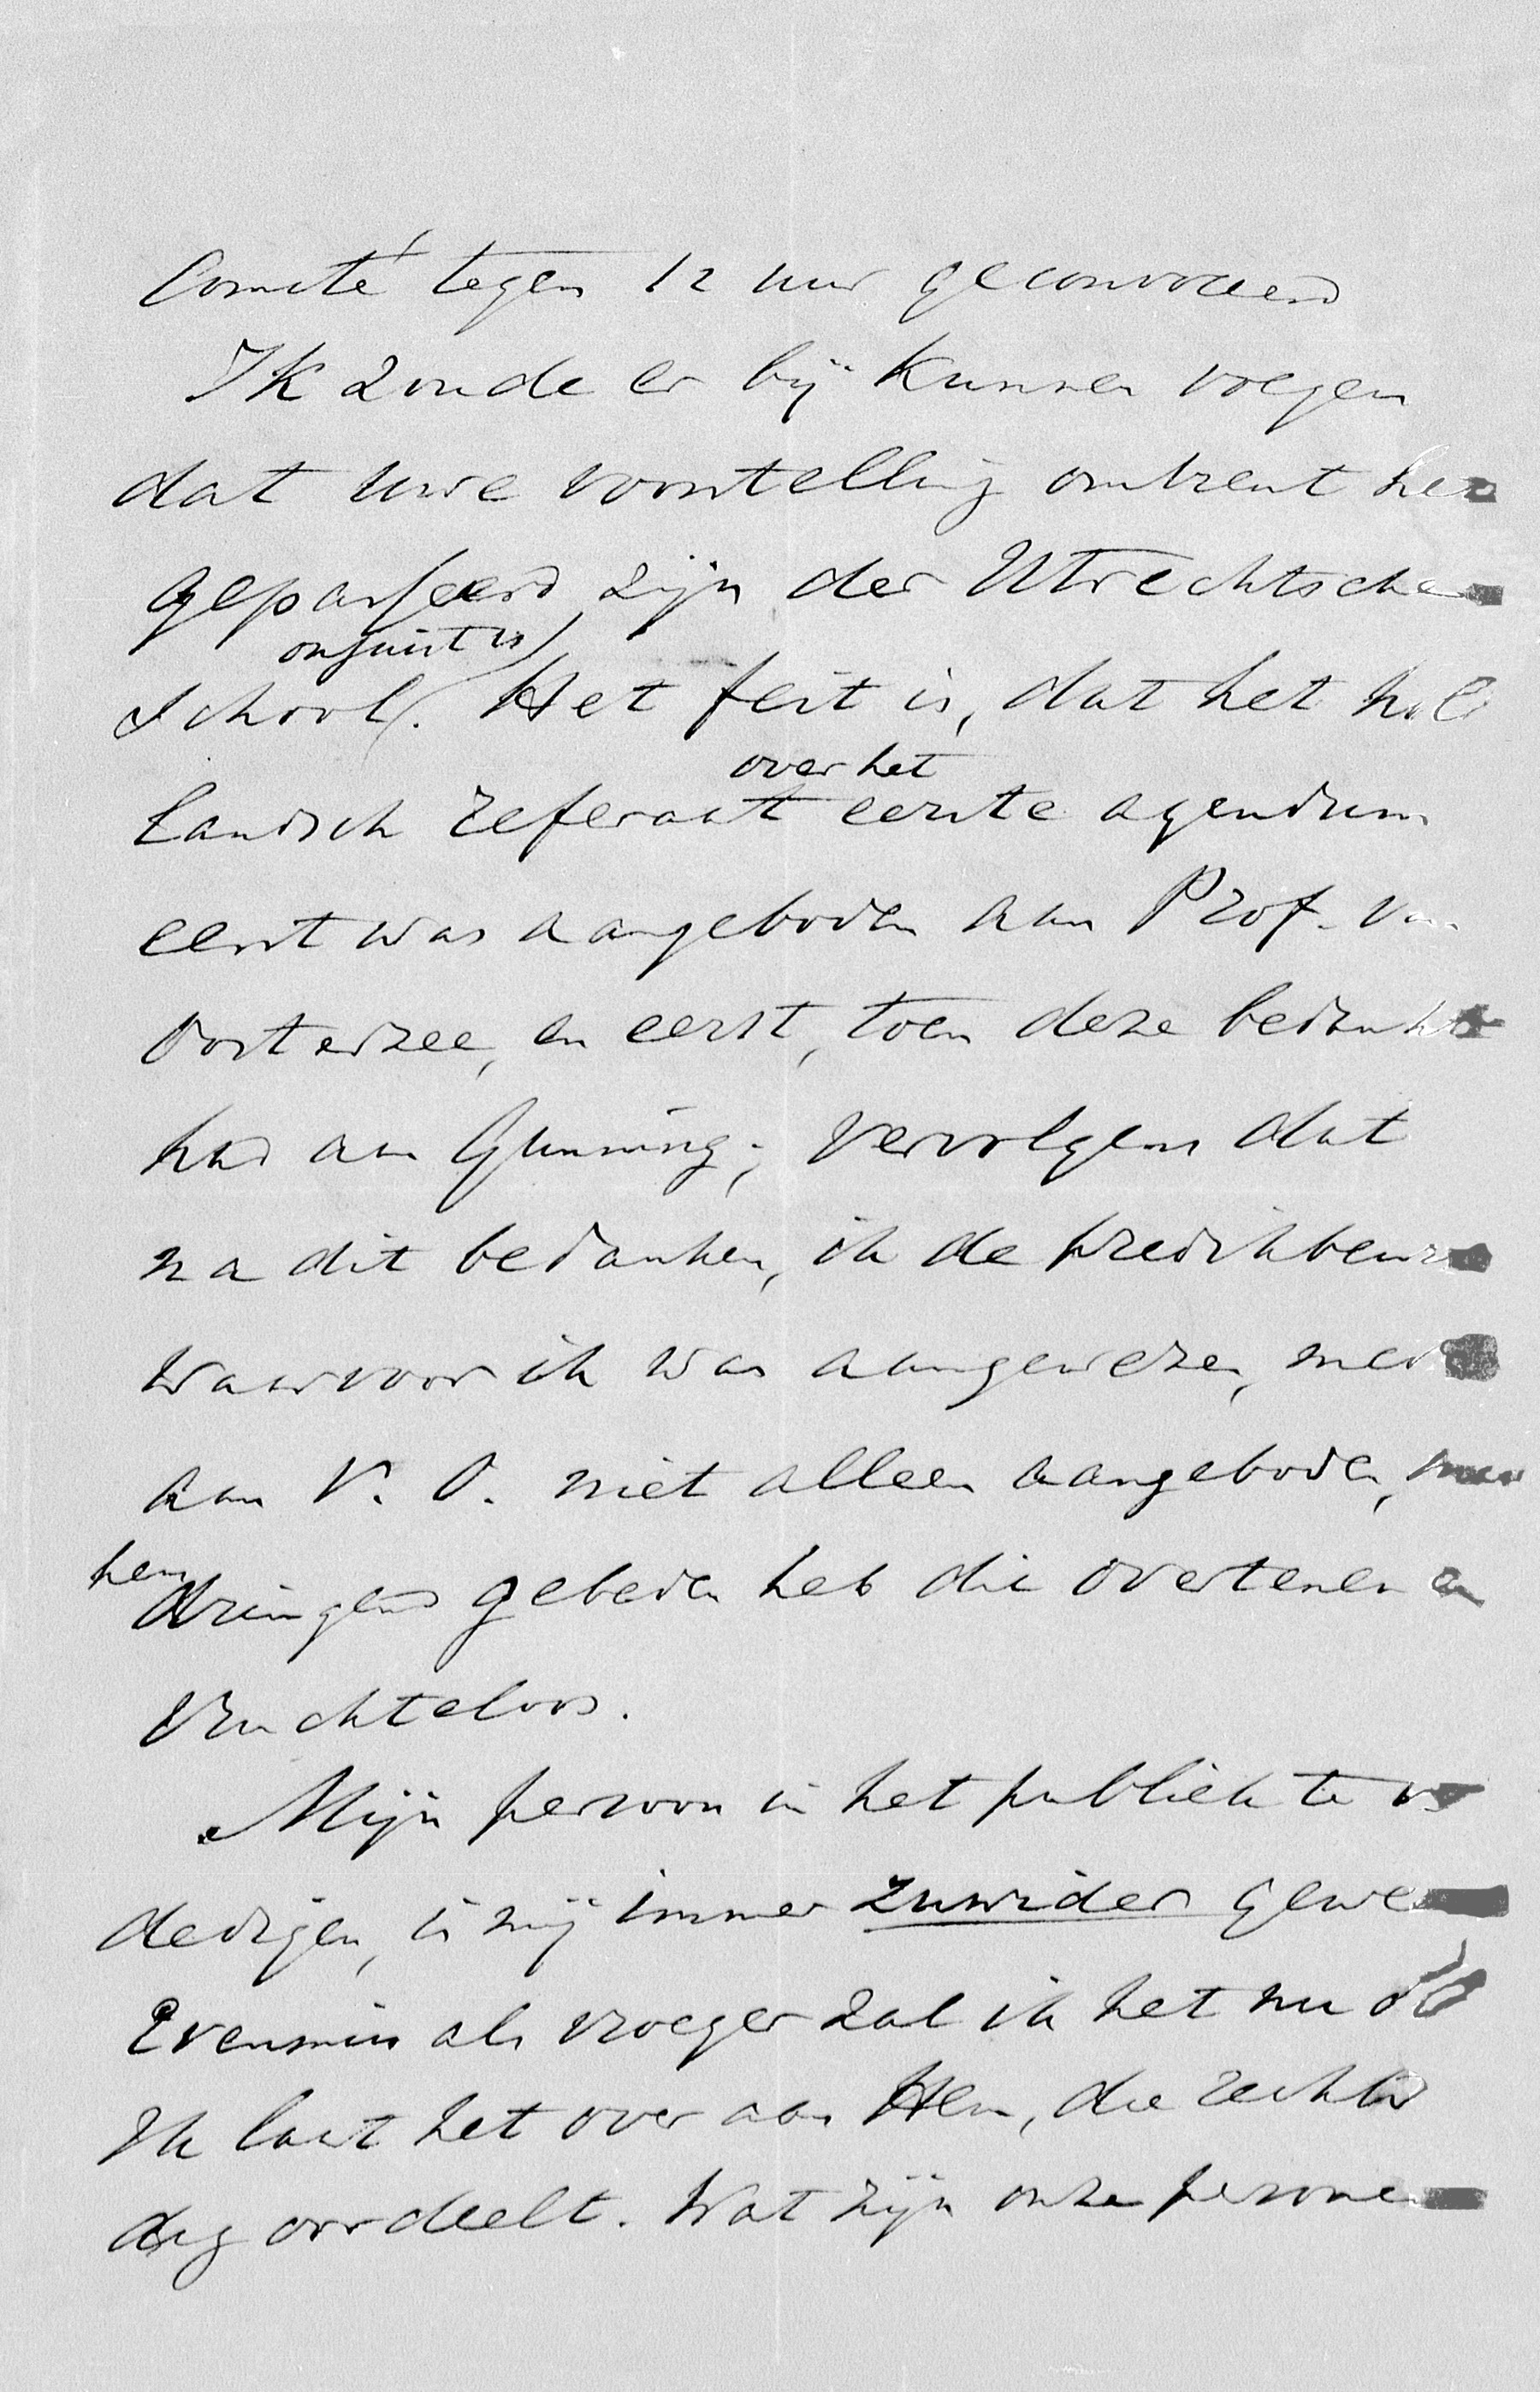 Comité tegen 12 uur geconvoceerd
Ik zoude er bij kunnen voegen
dat uwe voorstelling omtrent het
gepasseerd zijn der Utrechtsche
onjuist is
School. Het feit is, dat het hol
over het
landsch referaat eerste agendum
eerst was aangeboden aan Prof. van
Oosterzee, en eerst, toen deze bedankt
had aan Gunning; vervolgens dat
na dit bedanken, ik de predikbeurt
waarvoor ik was aangewezen, mede
aan V. O. niet alleen aangeboden, maar
hem
dringend gebeden heb die overtenemen
vruchteloos.
Mijn persoon in het publiek te ver
dedigen, is mij immer zuwider gewe
Evenmin als vroeger zal ik het nu
Ik laat het over aan Hem, die rechtv
dig oordeelt. Wat zijn onze personen